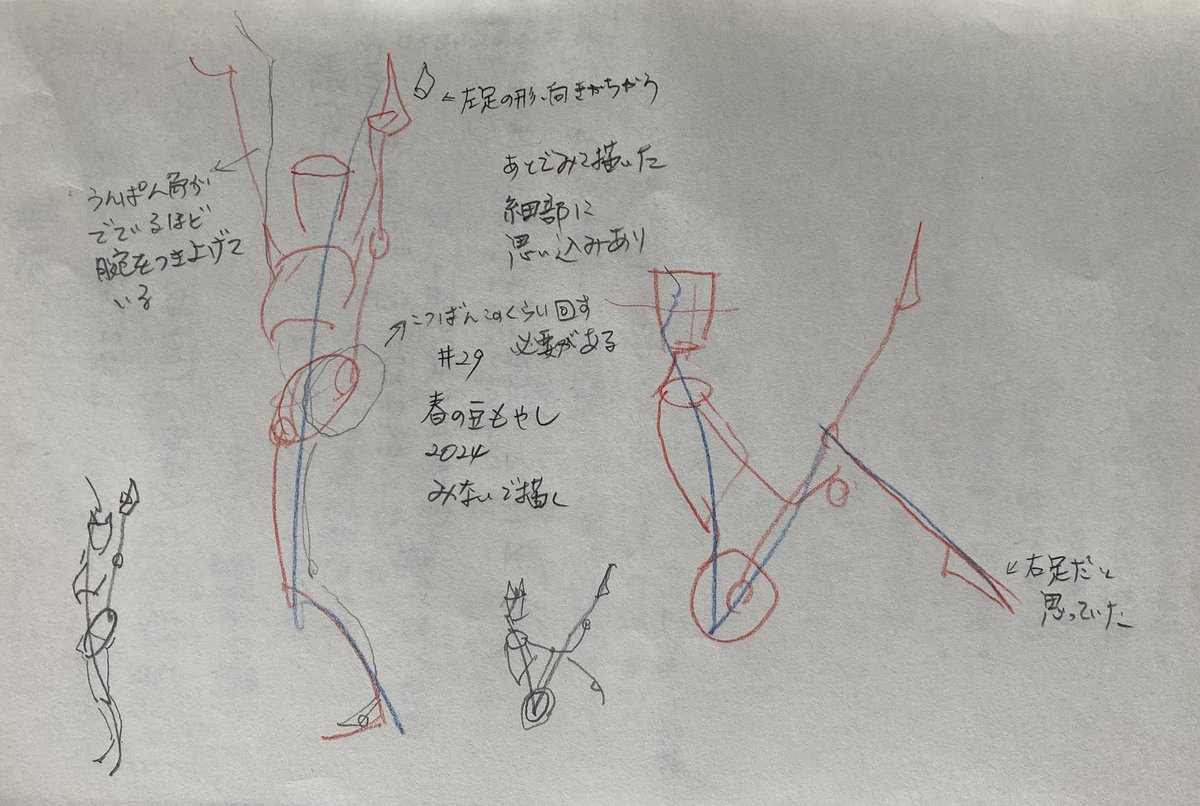 ←左足の形、向きがちがう
あとでみて描いた
細部に
思い込みあり
うんぱん角が
でているほど
腕をつき上げて
いる
こつばんこのくらい回す
必要がある
#29
春の豆もやし
2024
みないで描く
←右足だと
思っていた